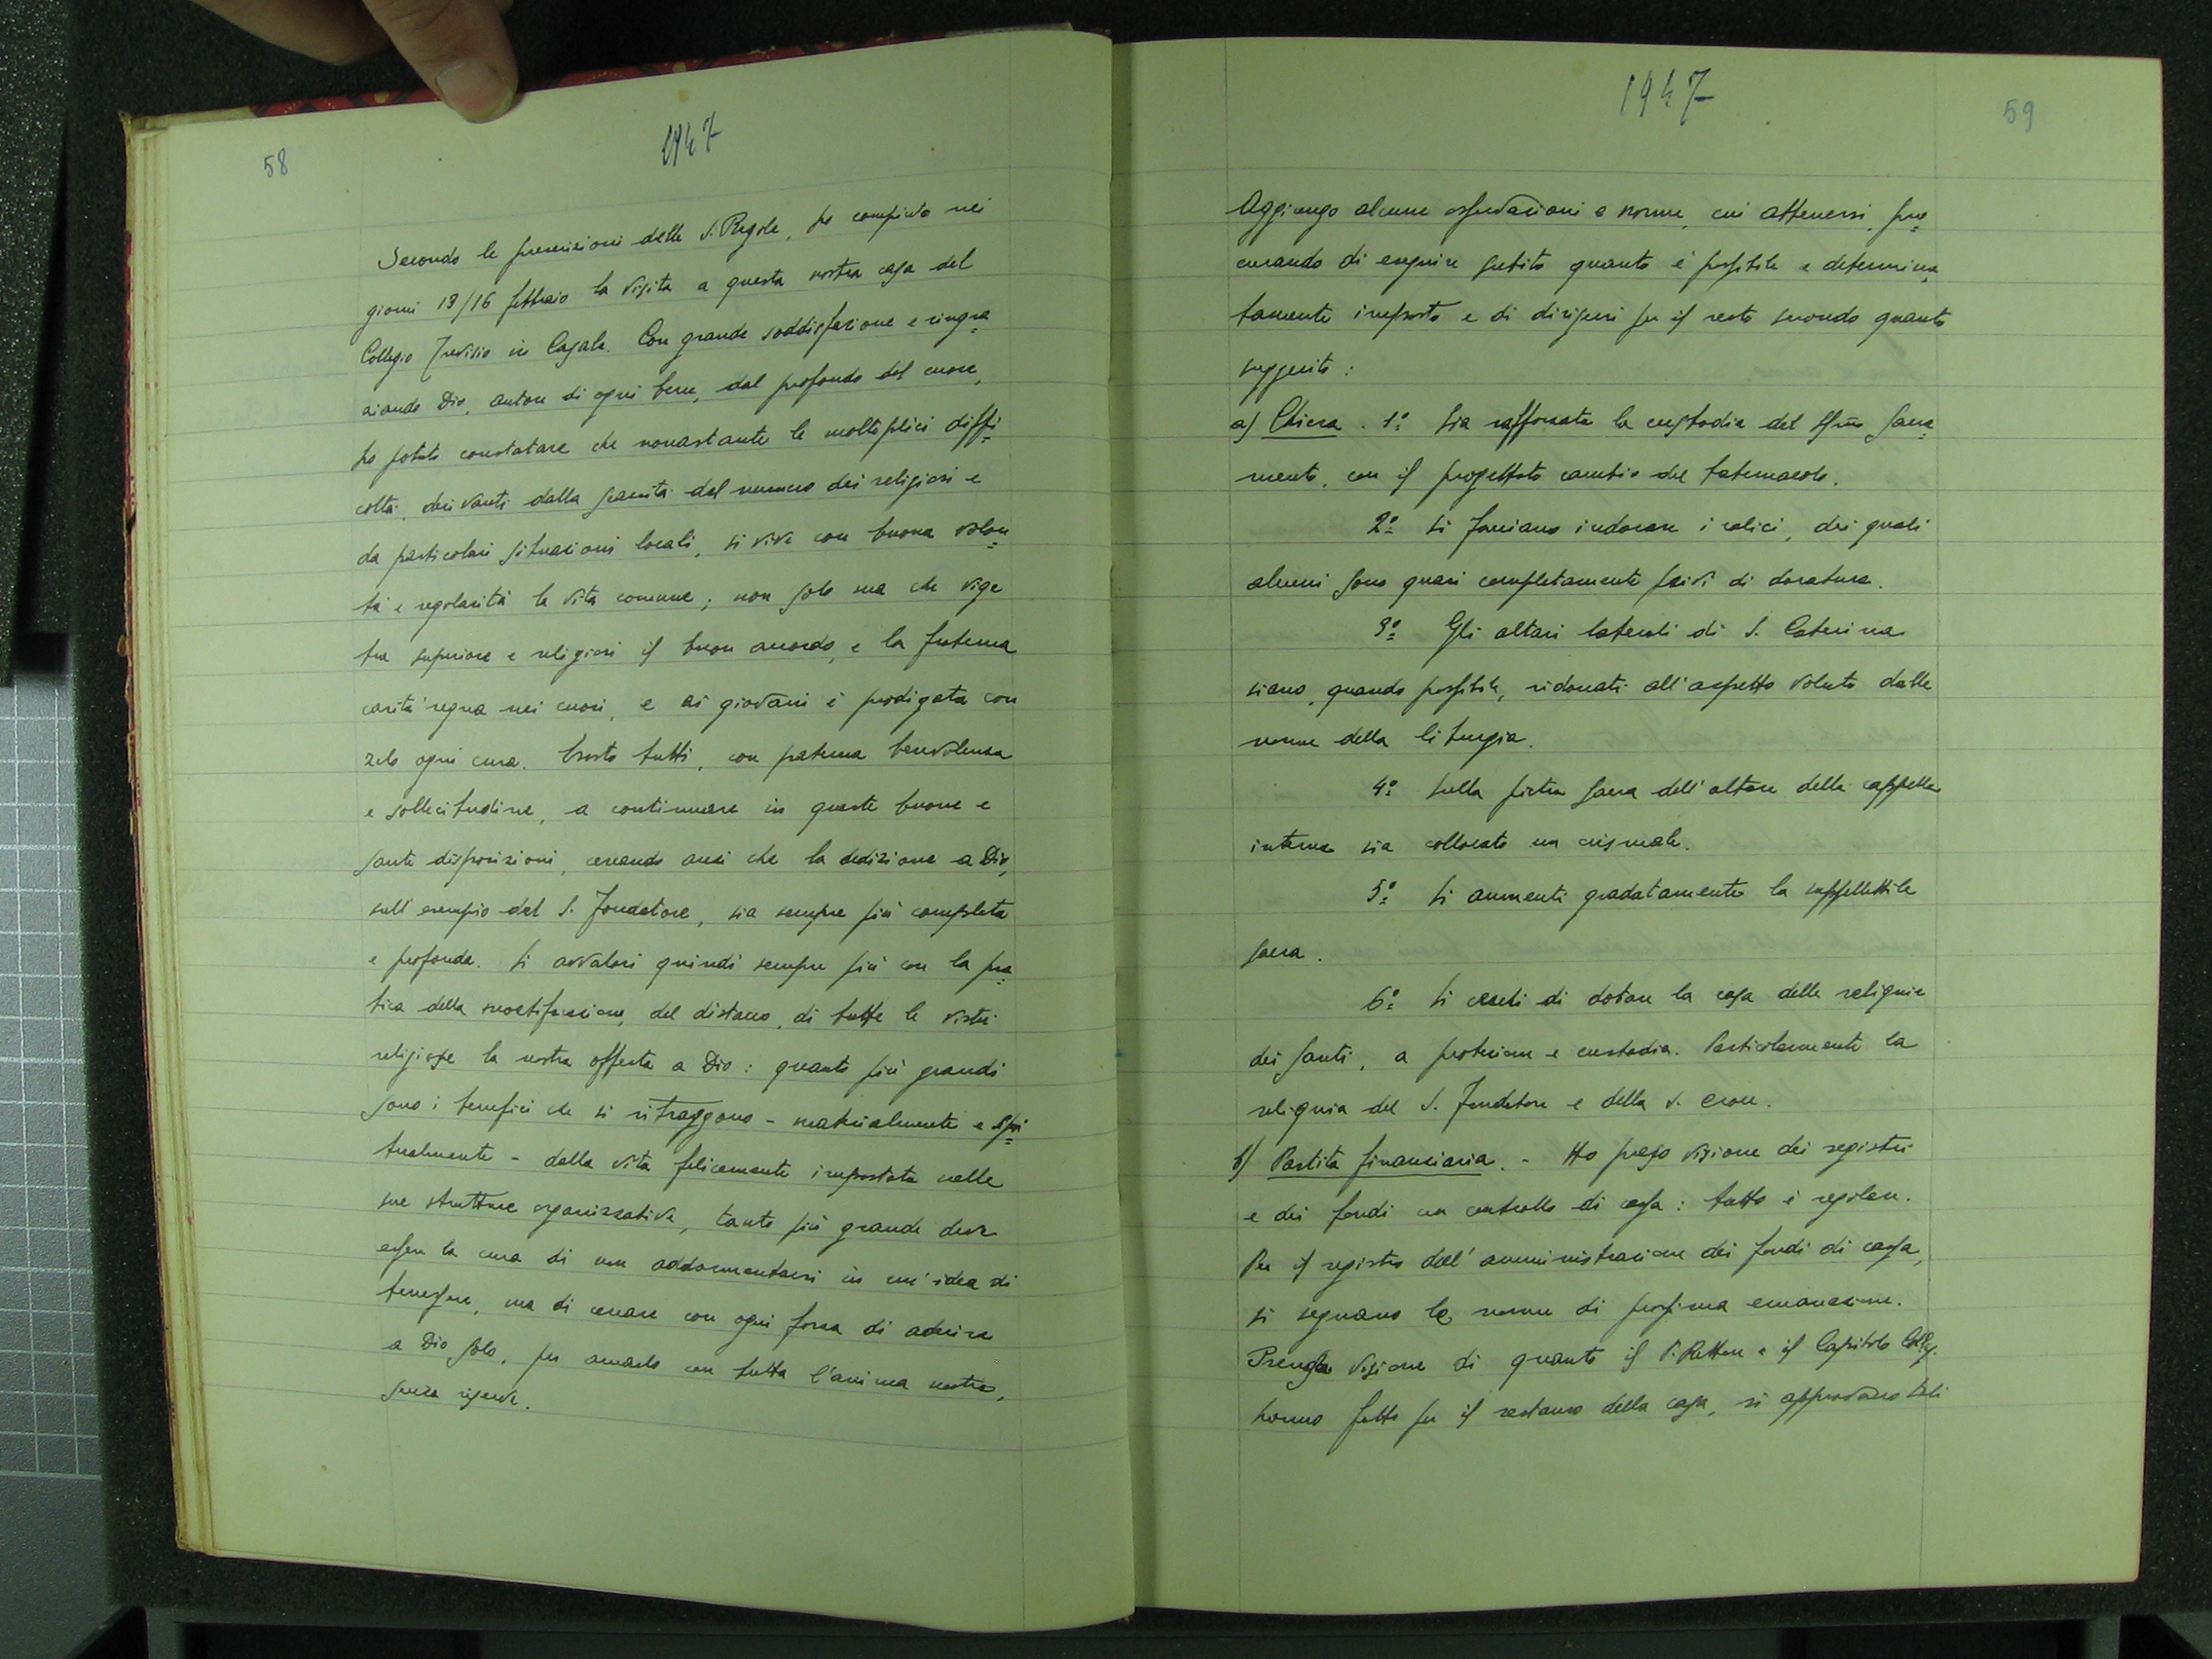 58
1947
Secondo le prescrizioni delle S. Regole, ho compiuto nei
giorni 13/16 febbraio la visita a questa nostra casa del
Collegio Trevisio in Casale. Con grande soddisfazione e ringra=
ziando Dio, autore di ogni bene, dal profondo del cuore,
ho potuto constatare che nonostante le molteplici diffi=
coltà, derivanti dalla scarsità del numero dei religiosi e
da particolari situazioni locali, si vive con buona volon=
tà e regolarità la vita comune; non solo ma che vige
tra superiore e religiosi il buon accordo, e la fraterna
carità regna nei cuori, e ai giovani è prodigata con
zelo ogni cura. Esorto tutti, con paterna benevolenza
e sollecitudine, a continuare in queste buone e
sante disposizioni, cercando anzi che la dedizione a Dio,
sull'esempio del S. Fondatore, sia sempre più completa
e profonda. Si avvalori quindi sempre più con la pra=
tica della mortificazione, del distacco, di tutte le virtù
religiose la nostra offerta a Dio: quanto più grandi
sono i benefici che si ritraggono - materialmente e spi=
ritualmente - dalla vita felicemente impostata nelle
sue strutture organizzative, tanto più grande deve
essere la cura di non addormentarsi in un'idea di
benessere, ma di cercare con ogni forza di aderire
a Dio solo, per amarlo con tutta l'anima nostra,
senza riserve.
1947
59
Aggiungo alcune osservazioni e norme, cui attenersi, pro=
curando di eseguire subito quanto è possibile e determina=
tamente imposto e di dirigersi per il resto secondo quanto
suggerito:
a) Chiesa. 1º Sia rafforzata la custodia del SS.mo Sacra=
mento, con il progettato cambio del tabernacolo.
2º Si facciano indorare i calici, dei quali
alcuni sono quasi completamente privi di doratura.
3º Gli altari laterali di S. Caterina
siano, quando possibile, ridonati all'aspetto voluto dalle
norme della liturgia.
4º Sulla pietra sacra dell'altare della cappella
interna sia collocato un crismale.
5º Si aumenti gradatamente la suppellettile
sacra.
6º Si cerchi di dotare la casa delle reliquie
dei Santi, a protezione e custodia. Particolarmente la
reliquia del S. Fondatore e della S. Croce.
b) Partita finanziaria. - Ho preso visione dei registri
e dei fondi con controllo di cassa: tutto è regolare.
Per il registro dell'amministrazione dei fondi di cassa,
si seguano le norme di prossima emanazione.
Presa visione di quanto il P. Rettore e il Capitolo Coll.
hanno fatto per il restauro della casa, si approvano tali